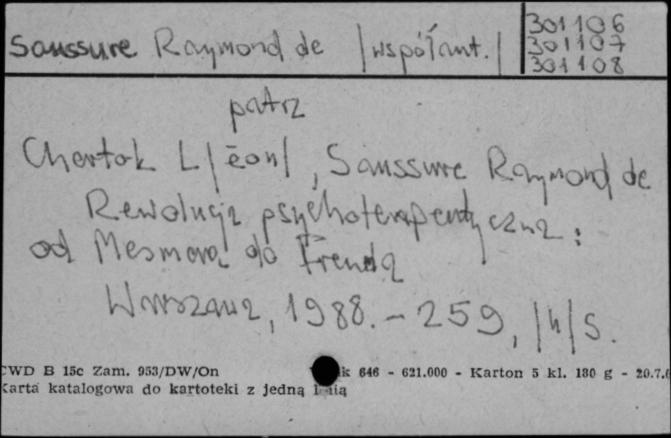 Saussure Raymond de /współaut./
301106
301107
301108
patrz
Chertok L/éon/, Saussure Raymond de
Rewolucja psychoterapeutyczna:
od Mesmera do Freuda
Warszawa, 1988. - 259, /4/ s.
CWD B 15c Zam. 953/DW/On k 646 - 621.000 - Karton 5 kl. 180 g - 20.7.6
Karta katalogowa do kartoteki z jedną linią